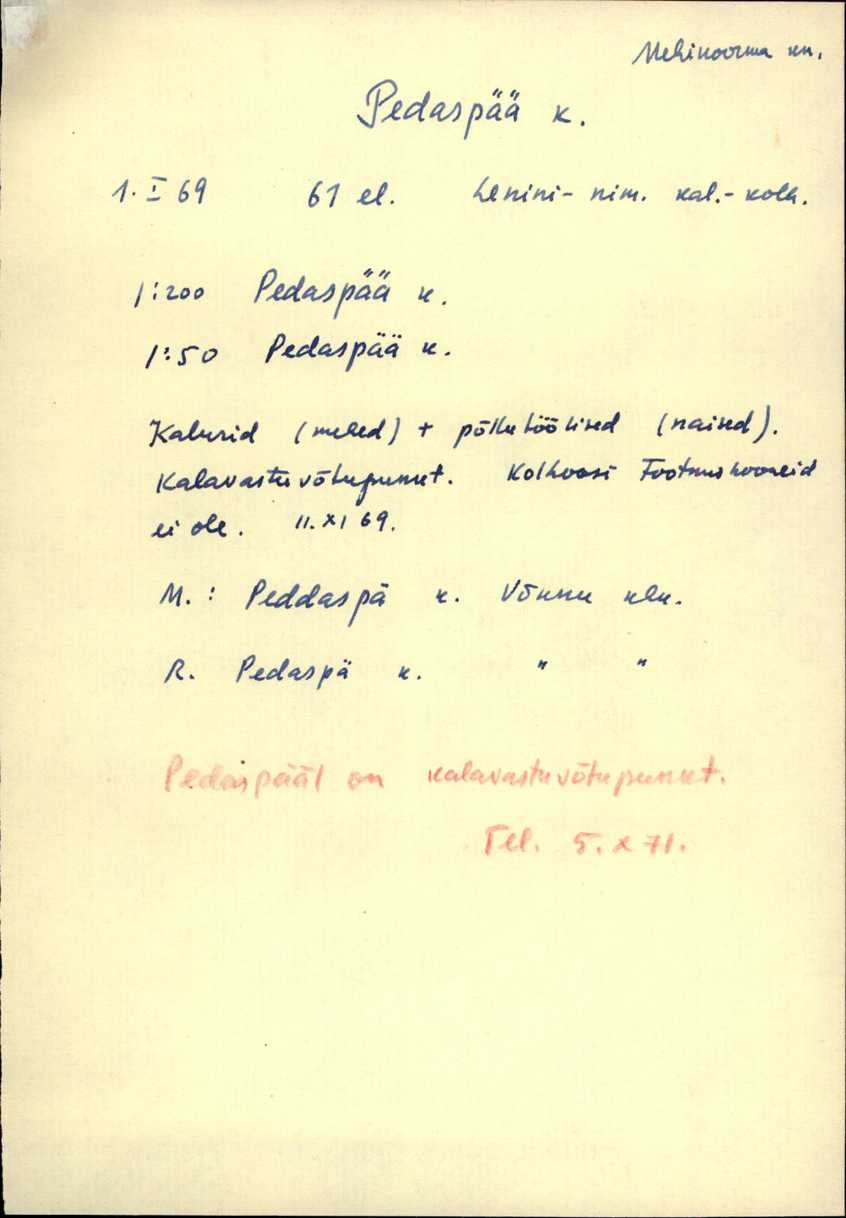 Mehikoorma kn.
Pedaspää k.
1. I 69 61 el. Lenini- nim. kal.- kolh.
1:200 Pedaspää k.
1:50 Pedaspää k.
Kalurid (mehed) + põllutöölised (naised).
Kalavastuvõtupunkt. Kolhoosi Tootmishooneid
ei ole. 11. XI 69.
M. : Peddaspä k. Võnnu khk.
R. Pedaspä k. " "
Pedaspääl on kalavastuvõtupunkt.
Tel. 5. X 71.